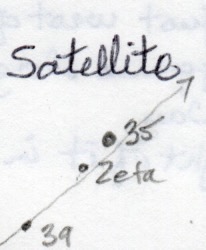 Satellite
35
Zeta
39